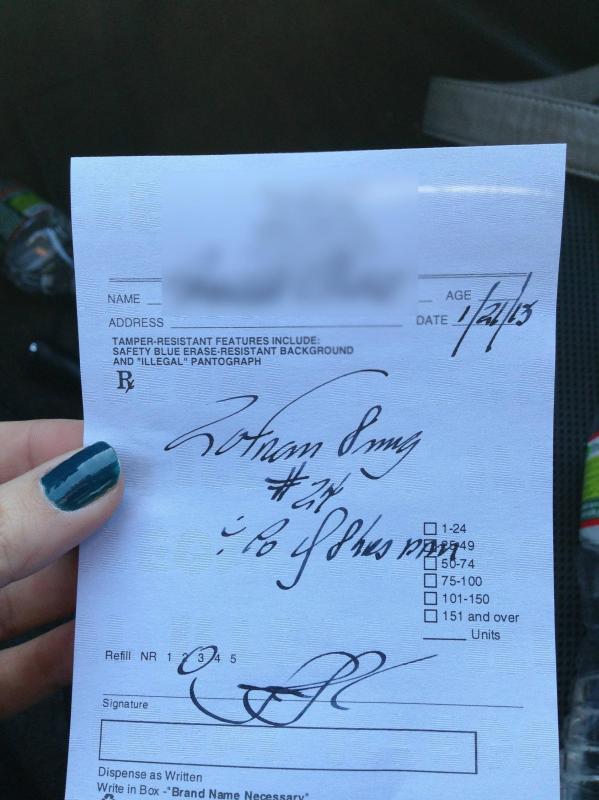 NAME AGE
ADDRESS DATE 1/21/13
TAMPER-RESISTANT FEATURES INCLUDE:
SAFETY BLUE ERASE-RESISTANT BACKGROUND
AND "ILLEGAL" PANTOGRAPH
Rx
Zofran 8mg
#24
PO q 8hrs prn
1-24
25-49
50-74
75-100
101-150
151 and over
Units
Refill NR 1 2 3 4 5
Signature
Dispense as Written
Write in Box -"Brand Name Necessary"